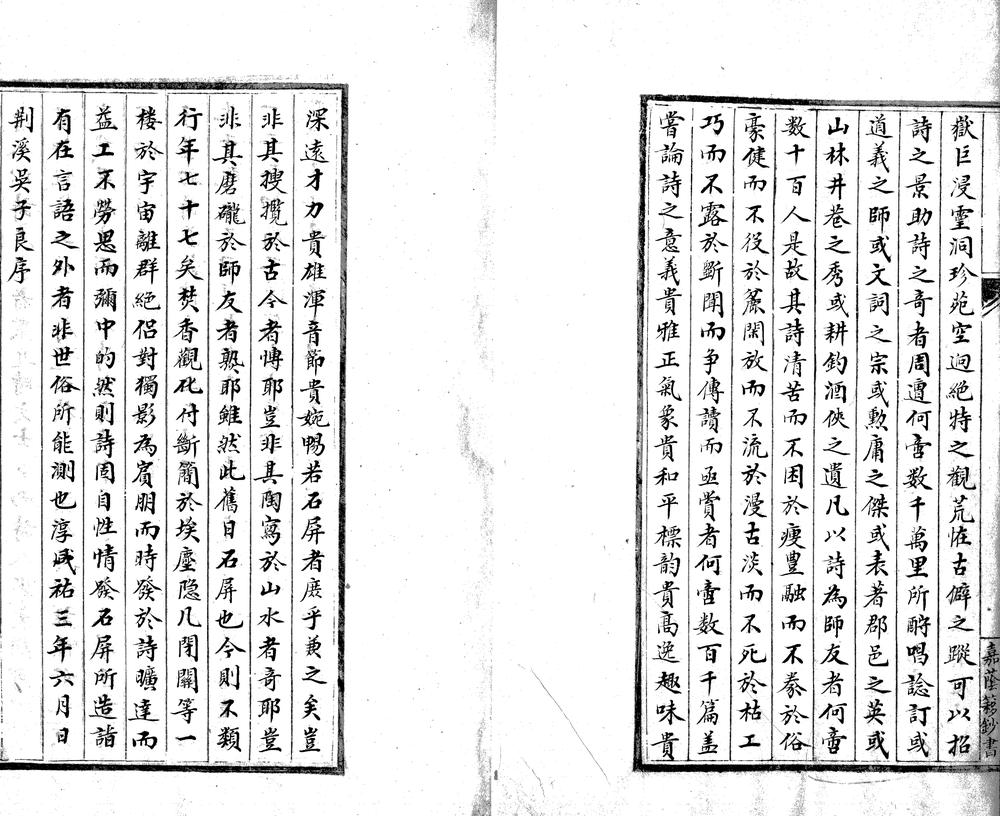 嶽巨浸靈洞珍苑空迥絕特之觀荒恠古僻之蹤可以招
詩之景助詩之奇者周遭何啻数千萬里所酧唱諗訂或
道義之師或文詞之宗或勲庸之傑或表著郡邑之英或
山林井巷之秀或耕釣酒俠之遺凡以詩為師友者何啻
数十百人是故其詩清苦而不困於瘦豐融而不豢於俗
豪健而不役於麄閑放而不流於漫古淡而不死於枯工
巧而不露於斵閒而争傳讀而亟賞者何啻数百千篇盖
嘗論詩之意義貴雅正氣象貴和平標韵貴髙逸趣味貴
嘉蔭簃鈔書
深遠才力貴雄渾音節貴婉暢若石屏者庶乎兼之矣豈
非其搜攬於古今者慱耶豈非其陶寫於山水者奇耶豈
非其磨礲於師友者熟耶雖然此舊日石屏也今則不類
行年七十七矣焚香觀化付斷簡於埃塵隐几閉關等一
楼於宇宙離群絕侶對獨影為賓朋而時發於詩曠達而
益工不勞思而彌中的然則詩固自性情發石屏所造詣
有在言語之外者非世俗所能測也淳祐三年六月日
荆溪吳子良序